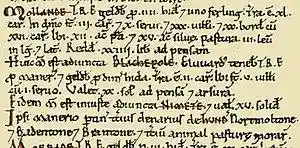 MOLLANDE T.R.E. geldb p .iiii. hid 7 uno ferling. Tra. ē .xl.
car. In dnio sᵗ .iii. car 7 .x. servi 7 .xxx. villi 7 .xx. bord cū
.xvi. car. Ibi .xii. ac pti 7 .xv. ac silvæ. Pastura .iii. leu
in lg 7 lat. Redd .xxiiii. lib ad pensan.
Huic ꝏ est adiuncta BLACHEPOLE. Eluuard teneb T.R.E.
p Maner 7 geldb p dim hida. Tra. ē .ii. car. Ibi sᵗ .v. villi
cū .i. servo. Valet .xx. sol ad pensā 7 arsurā.
Eidem ꝏ est iniuste adiuncta NIMETE 7 val .xv. solid.
Ipsi manerio ptin tcius denarius de Hund Nortmoltone
7 Badentone 7 Brantone 7 tciū animal pasturæ morar.